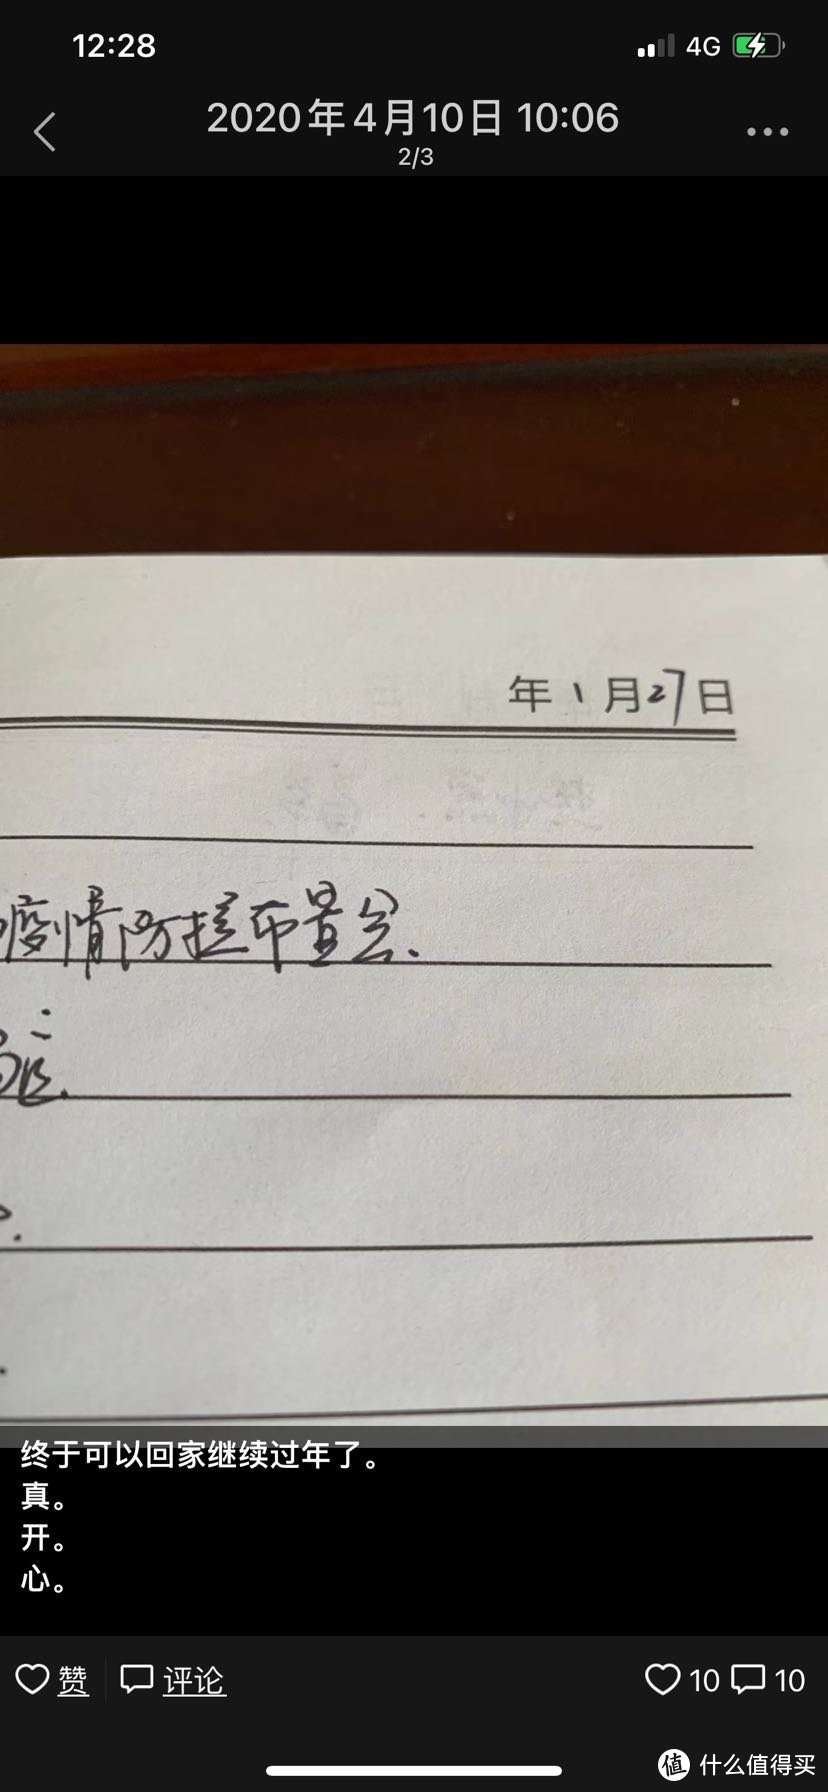 12:28
4G
2020年4月10日 10:06
2/3
年1月27日
疫情防控布置会.
终于可以回家继续过年了。
真。
开。
心。
赞 评论 10 10
值 什么值得买